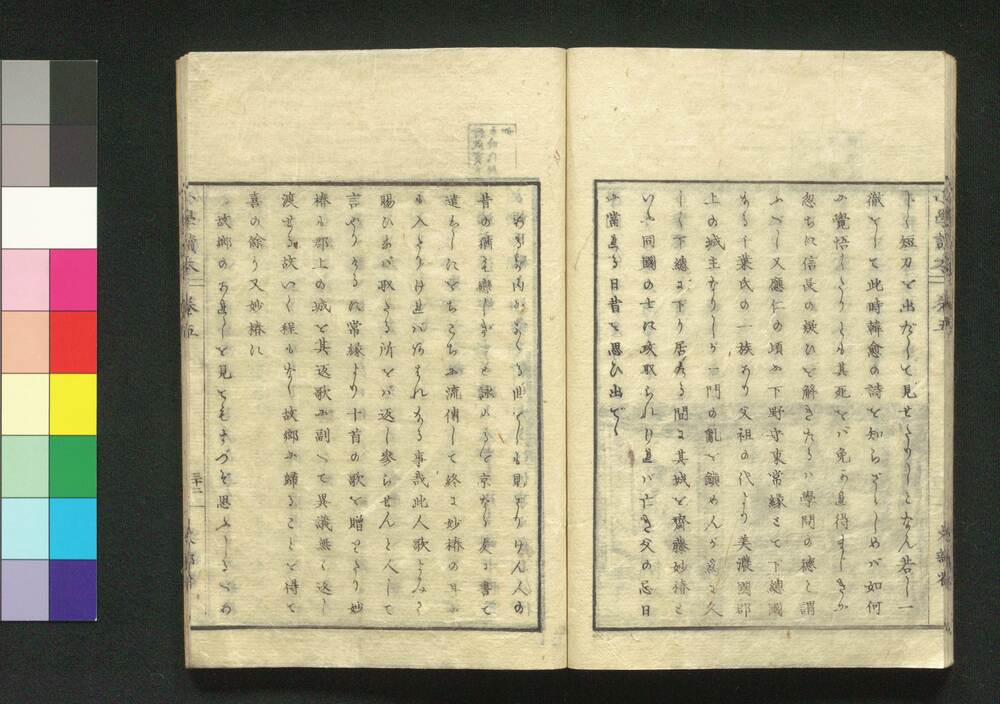 して短刀を出だして見せたりしとなん若し一
徹をして此時韓愈の詩を知らざらしめば如何
に覺悟したりとも其死をバ免かれ得まじきが
忽ちに信長の疑ひを解きたるハ學問の德と謂
ふべし又應仁の頃に下野守東常緣とて下總國
なる千葉氏の一族あり父祖の代より美濃國郡
上の城主なりしが一門の亂を鎭め人が爲に久
しく下總に下り居たる間に其城を齋藤妙椿と
いふ同國の士に攻取られければ亡き父の忌日
に當れる日昔を思ひ出でゝ
あるが内にかゝる世をしも見たりけん人の
昔の猶も戀しき
と詠みけるを京なる友に書て
遣はしにをちこちに流傳して終に妙椿の耳に
も入たりければあはれなる事哉此人歌よみて
賜ひなば取たる所をバ返し參らせんと人して
言やりけるに常緣より十首の歌を贈りたり妙
椿も郡上の城を其返歌に副へて異議無く返し
渡せる故いく程もなく故鄕に歸ることを得て
喜の餘り又妙椿に
故鄕の
小學讀本 卷五
三十二